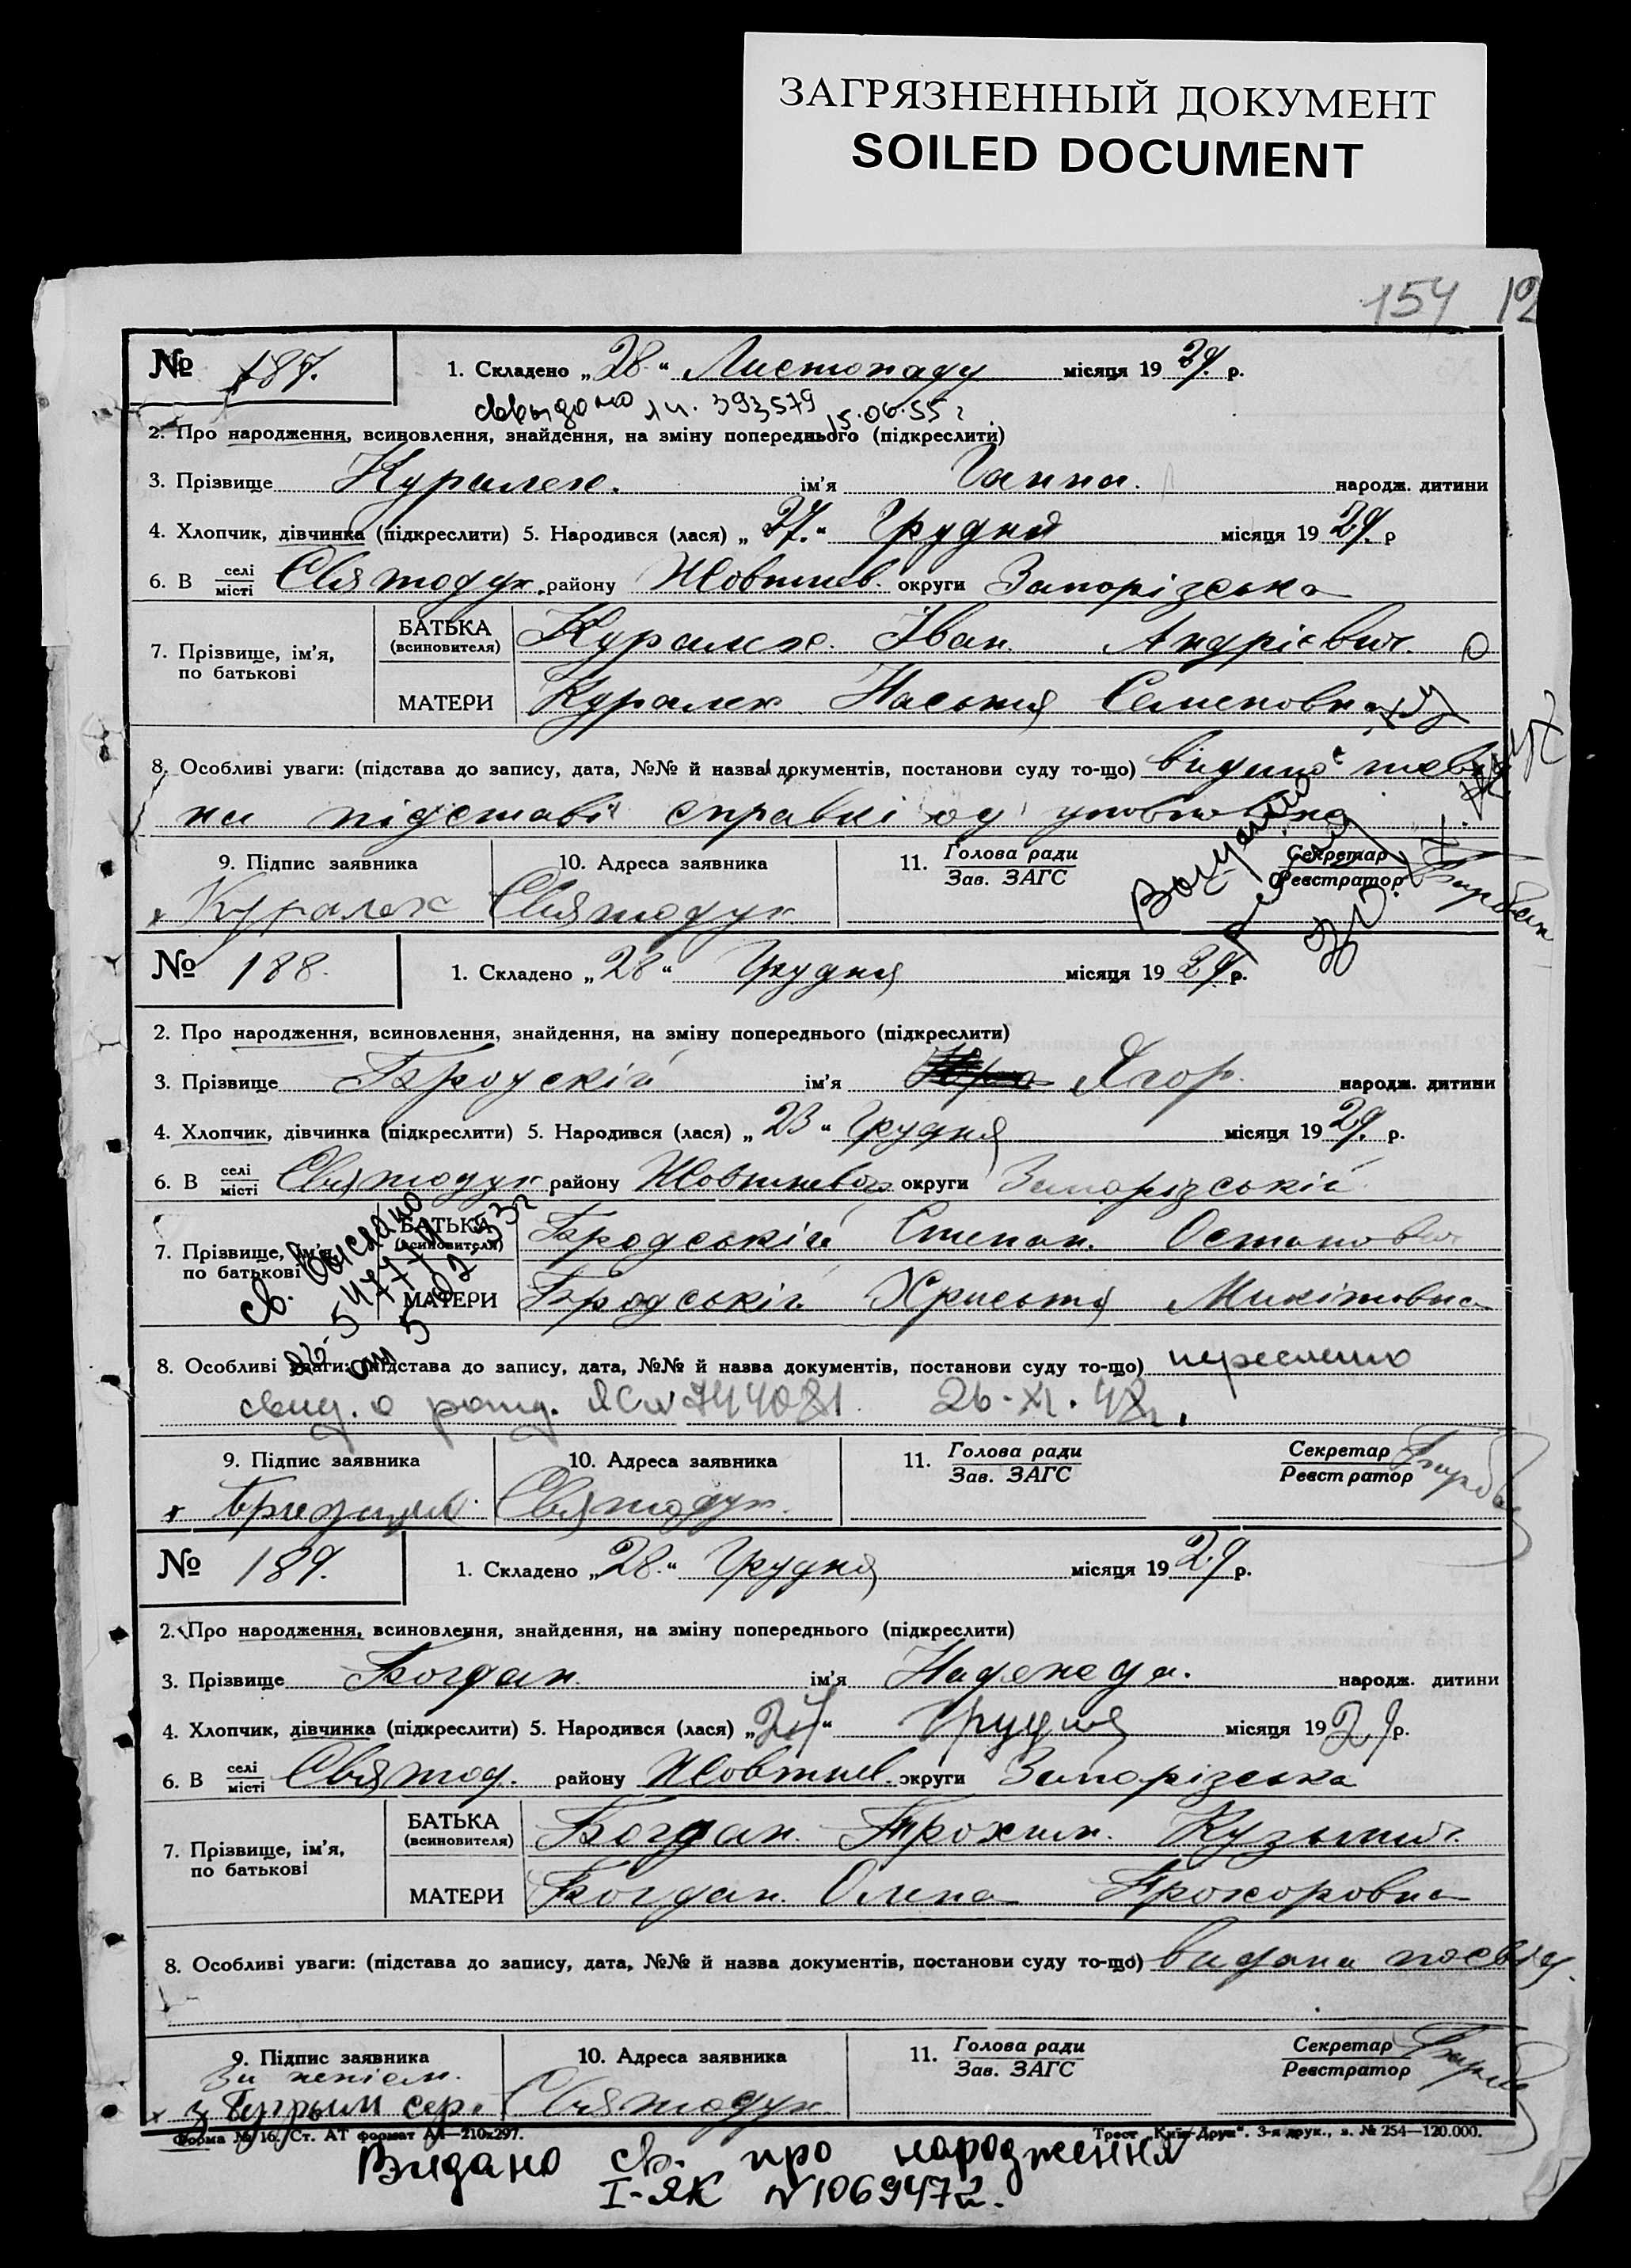 ЗАГРЯЗНЕННЫЙ ДОКУМЕНТ
SOILED DOCUMENT
154 12
№ 187. 1. Складено „28“ Листопаду місяця 1929. р.
393579 15.06.55 г
2. Про народження, всиновлення, знайдення, на зміну попереднього (підкреслити)
3. Прізвище Куралех. ім'я Ганна. народж. дитини
4. Хлопчик, дівчинка (підкреслити) 5. Народився (лася) „27.“ Грудня місяця 1929. р
6. В селі місті Святодух. району Жовтнев. округи Запорізська
7. Прізвище, ім'я, по батькові
БАТЬКА (всиновителя) Куралех. Іван. Андрієвич.
МАТЕРИ Куралех Настья Семеновна
8. Особливі уваги: (підстава до запису, дата, №№ й назва документів, постанови суду то-що)
на підставі справкі од
9. Підпис заявника 10. Адреса заявника 11. Голова ради Зав. ЗАГС Секретар Реєстратор
Куралех Святодух
№ 188. 1. Складено „28“ Грудня місяця 1929. р.
2. Про народження, всиновлення, знайдення, на зміну попереднього (підкреслити)
3. Прізвище Бродскій ім'я Ягор. народж. дитини
4. Хлопчик, дівчинка (підкреслити) 5. Народився (лася) „23“ Грудня місяця 1929. р.
6. В селі місті Святодух району Жовтнево округи Запорізській
7. Прізвище, ім'я, по батькові
БАТЬКА (всиновителя) Бродській Степан. Остапович
МАТЕРИ Бродській Христья Микітовна
св. Выслано
8. Особливі уваги: (підстава до запису, дата, №№ й назва документів, постанови суду то-що)
свид. о рожд. ЯС № 744081 26-XI.48г.
9. Підпис заявника 10. Адреса заявника 11. Голова ради Зав. ЗАГС Секретар Реєстратор
Святодух.
№ 189. 1. Складено „28.“ Грудня місяця 1929 р.
2. Про народження, всиновлення, знайдення, на зміну попереднього (підкреслити)
3. Прізвище Богдан. ім'я Надежда. народж. дитини
4. Хлопчик, дівчинка (підкреслити) 5. Народився (лася) Грудня місяця 1929 р.
6. В селі місті Святод. району Жовтнев. округи Запорізська
7. Прізвище, ім'я, по батькові
БАТЬКА (всиновителя) Богдан. Трохим. Кузьмич.
МАТЕРИ Богдан. Олена Прохоровна
8. Особливі уваги: (підстава до запису, дата, №№ й назва документів, постанови суду то-що) видана посвід.
9. Підпис заявника 10. Адреса заявника 11. Голова ради Зав. ЗАГС Секретар Реєстратор
Святодух
Форма № 16. Ст. АТ формат А4—210х297. Трест „Київ-Друк“. 3-я друк., з. № 254—120.000.
Видано св. про народження
I-ЯК № 1069472.